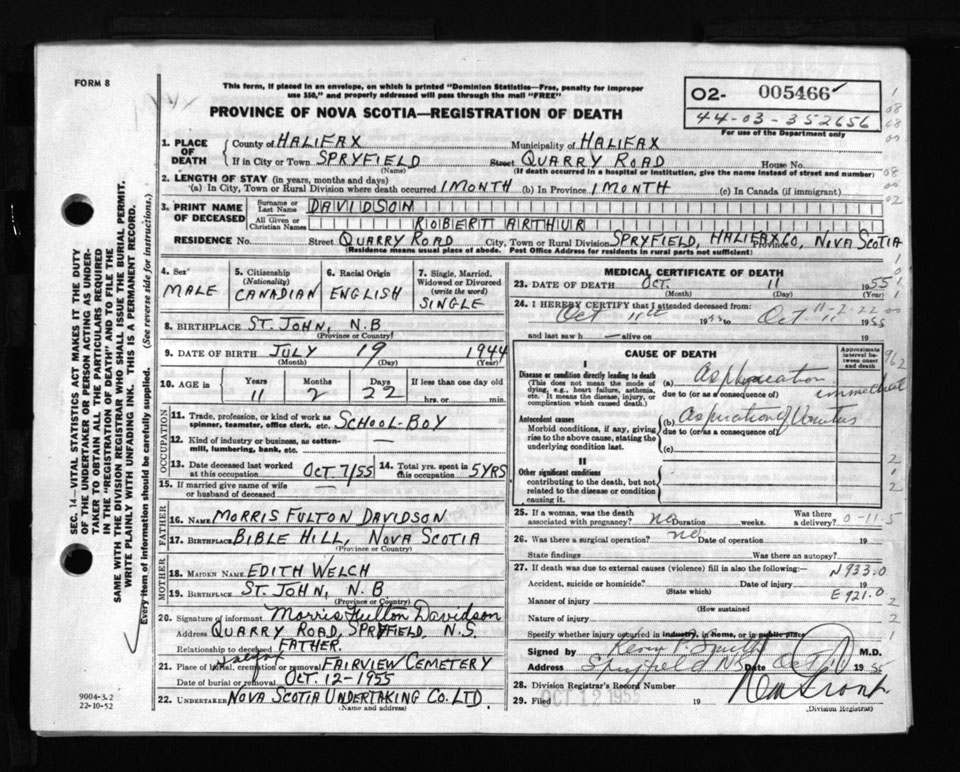 FORM 8
This form, if placed in an envelope, on which is printed "Dominion Statistics—Free, penalty for improper
use $50," and properly addressed will pass through the mail "FREE".
O2- 005466
44-03-352656
For use of the Department only
PROVINCE OF NOVA SCOTIA—REGISTRATION OF DEATH
1. PLACE OF DEATH
County of HALIFAX Municipality of HALIFAX
If in City or Town SPRYFIELD Street QUARRY ROAD House No.
(Name) (If death occurred in a hospital or institution, give the name instead of street and number)
2. LENGTH OF STAY (in years, months and days)
(a) In City, Town or Rural Division where death occurred 1 MONTH (b) In Province 1 MONTH (c) In Canada (if immigrant)
3. PRINT NAME OF DECEASED
Surname or Last Name DAVIDSON
All Given or Christian Names ROBERT ARTHUR
RESIDENCE No. Street QUARRY ROAD City, Town or Rural Division SPRYFIELD, HALIFAX CO, Province NOVA SCOTIA
(Residence means usual place of abode. Post Office Address for residents in rural parts not sufficient)
4. Sex
MALE
5. Citizenship
(Nationality)
CANADIAN
6. Racial Origin
ENGLISH
7. Single, Married, Widowed or Divorced
(write the word)
SINGLE
8. BIRTHPLACE ST. JOHN, N.B
(Province or Country)
9. DATE OF BIRTH JULY 19 1944
(Month) (Day) (Year)
10. AGE in
Years Months Days If less than one day old
11 2 22 hrs. or min.
OCCUPATION
11. Trade, profession, or kind of work as spinner, teamster, office clerk, etc. SCHOOL-BOY
12. Kind of industry or business, as cotton-mill, lumbering, bank, etc.
13. Date deceased last worked at this occupation OCT 7/55 14. Total yrs. spent in this occupation 5 YRS
15. If married give name of wife or husband of deceased —
FATHER
16. NAME MORRIS FULTON DAVIDSON
17. BIRTHPLACE BIBLE HILL, NOVA SCOTIA
(Province or Country)
MOTHER
18. MAIDEN NAME EDITH WELCH
19. BIRTHPLACE ST. JOHN, N.B.
(Province or Country)
20. Signature of informant Morris Fulton Davidson
Address QUARRY ROAD, SPRYFIELD, N.S.
Relationship to deceased FATHER.
21. Place of burial, cremation or removal Halifax FAIRVIEW CEMETERY
Date of burial or removal OCT. 12-1955
22. UNDERTAKER NOVA SCOTIA UNDERTAKING CO. LTD.
(Name and address)
MEDICAL CERTIFICATE OF DEATH
23. DATE OF DEATH OCT. 11 1955
(Month) (Day) (Year)
11-2-22
24. I HEREBY CERTIFY that I attended deceased from:
Oct 11th 1955 to Oct 11 1955
and last saw h — alive on 19
CAUSE OF DEATH
Approximate interval between onset and death
I
Disease or condition directly leading to death
(This does not mean the mode of dying, e.g., heart failure, asthenia, etc. It means the disease, injury, or complication which caused death.)
(a) Asphyxiation immediate
due to (or as a consequence of)
Antecedent causes
Morbid conditions, if any, giving rise to the above cause, stating the underlying condition last.
(b) Aspiration of Vomitus
due to (or as a consequence of)
(c)
II
Other significant conditions
contributing to the death, but not related to the disease or condition causing it.
25. If a woman, was the death associated with pregnancy? no Duration weeks. Was there a delivery? 0-11-5
26. Was there a surgical operation? no Date of operation 19
State findings Was there an autopsy?
27. If death was due to external causes (violence) fill in also the following:— N933.0
Accident, suicide or homicide? Date of injury 19
(State which)
E921.0
Manner of injury
(How sustained)
Nature of injury
Specify whether injury occurred in industry, in home, or in public place
Signed by Kevin P. Smith M.D.
Address Spryfield N.S. Date Oct 11 1955
28. Division Registrar's Record Number
29. Filed OCT 12 1955 19
(Division Registrar)
SEC. 14—VITAL STATISTICS ACT MAKES IT THE DUTY
OF THE UNDERTAKER OR PERSON ACTING AS UNDER-
TAKER TO OBTAIN ALL THE PARTICULARS REQUIRED
IN THE "REGISTRATION OF DEATH" AND TO FILE THE
SAME WITH THE DIVISION REGISTRAR WHO SHALL ISSUE THE BURIAL PERMIT.
WRITE PLAINLY WITH UNFADING INK. THIS IS A PERMANENT RECORD.
Every item of information should be carefully supplied. (See reverse side for instructions.)
9004-3.2
22-10-52